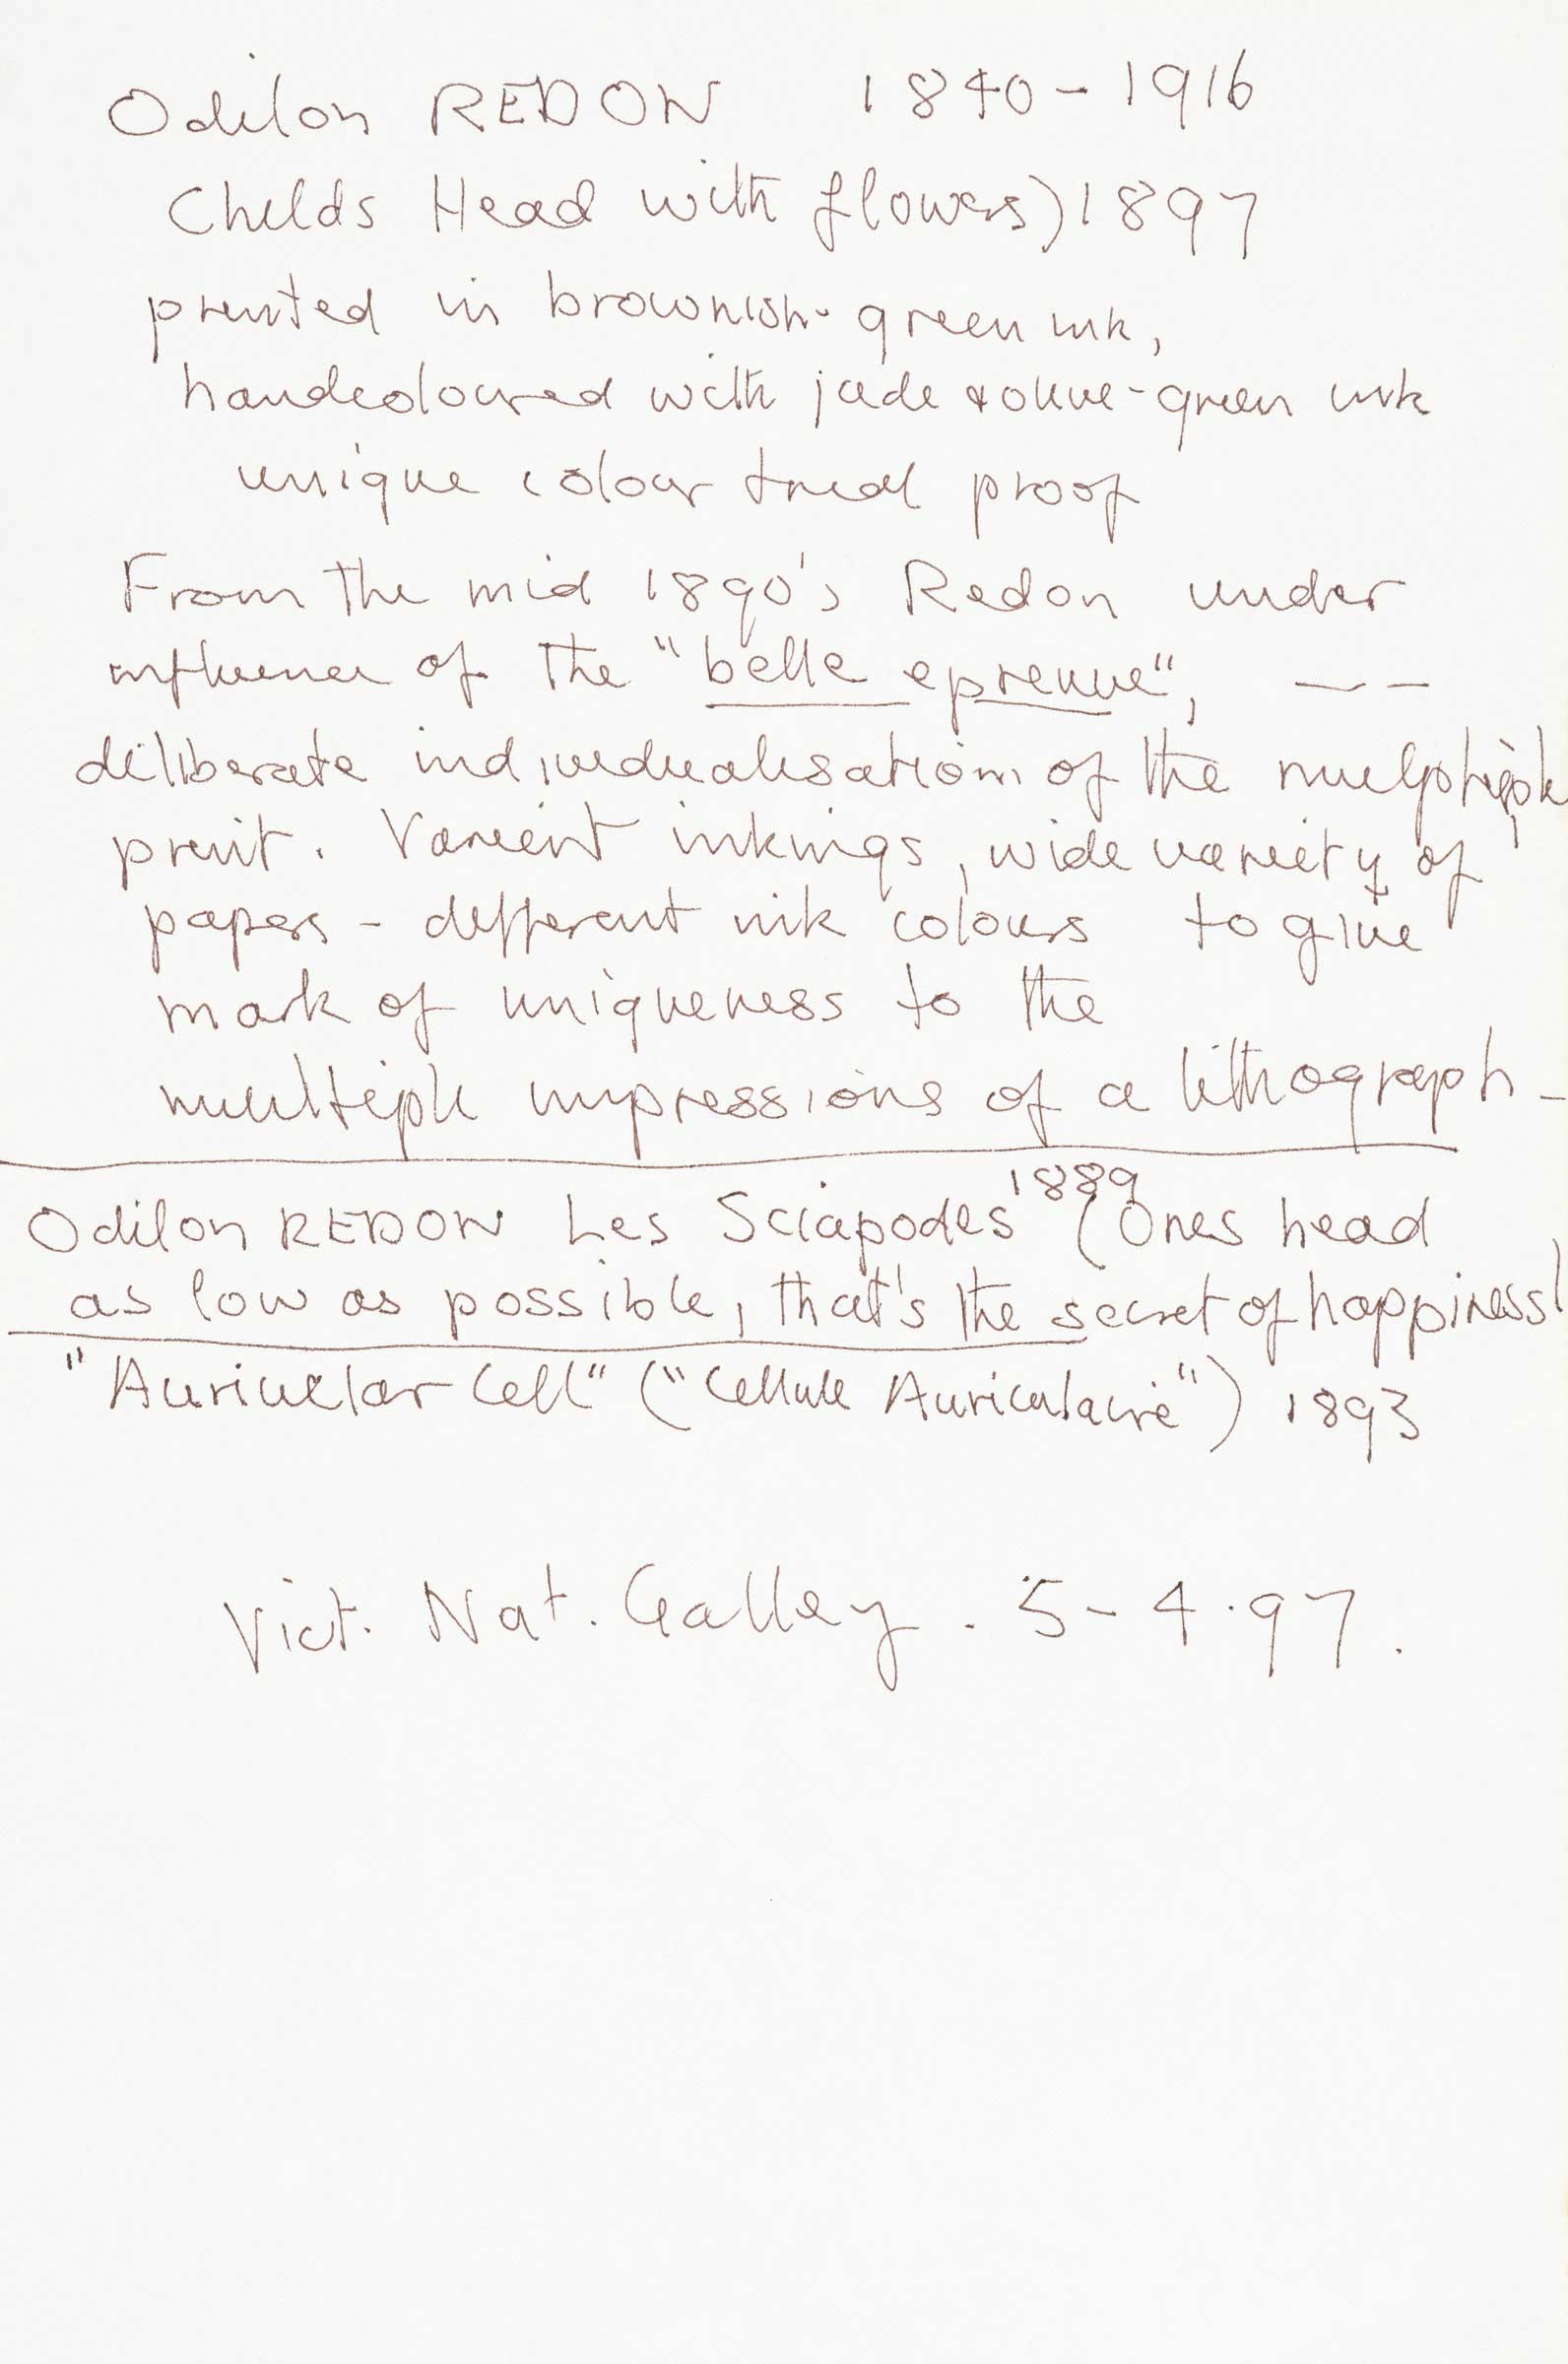 Odilon REDON 1840-1916
Childs Head with flowers) 1897
printed in brownish-green ink,
handcoloured with jade & olive-green ink
unique colour trial proof
From the mid 1890's Redon under
influence of the "belle epreuve", — –
deliberate individualisation of the multiple
print. Varient inkings, wide variety of
papers - different ink colours to give
mark of uniqueness to the
multiple impressions of a lithograph -
Odilon REDON Les Sciapodes 1889 (Ones head
as low as possible, that's the secret of happiness!
"Auricular Cell" ("Cellule Auriculaire") 1893
Vict. Nat. Galley. 5-4.97.